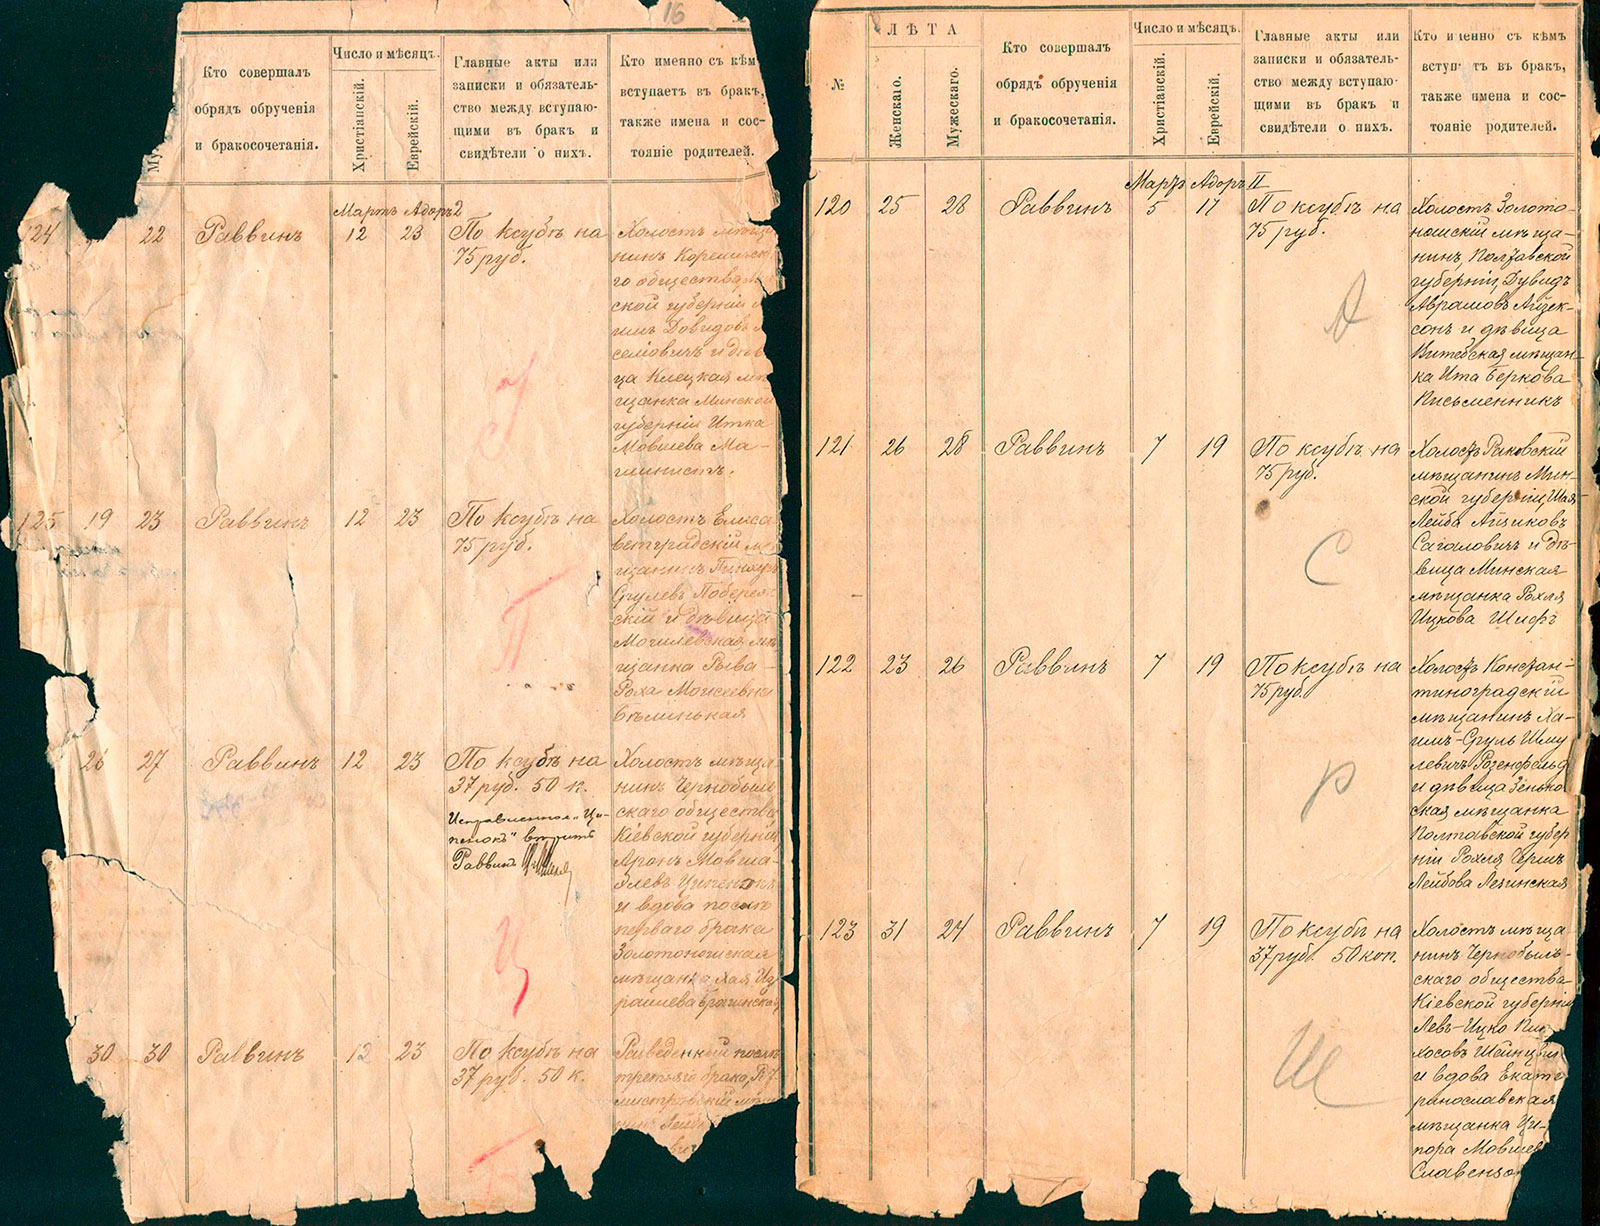 16
Кто совершалъ
обрядъ обрученія
и бракосочетанія.
Число и мѣсяцъ.
Христіанскій.
Еврейскій.
Главные акты или
записки и обязатель-
ство между вступаю-
щими въ бракъ и
свидѣтели о нихъ.
Кто именно съ кѣм
вступаетъ въ бракъ,
также имена и сос-
тояніе родителей.
Мартъ Адоръ 2
124 22 Раввинъ 12 23
По ксубѣ на
75 руб.
Холостъ мѣща
нинъ
го общества
ской губерніи
имъ Довидовъ
селіовичъ и дѣв
ца Клецкая мѣ
щанка Минской
губерніи Итка
Мовшева Ма-
шинистъ.
125 19 23 Раввинъ 12 23
По ксубѣ на
75 руб.
П
Холостъ Елиса
ветградскій мѣ
щанинъ
Сруlевъ Побереж
скій и дѣвица
Могилевская мѣ
щанка Рыва-
Роха Моисеевна
Бѣлинькая
26 27 Раввинъ 12 23
По ксубѣ на
37 руб. 50 к.
Исправленное „Ци-
пенюкъ" вѣрить
Раввинъ
Ц
Холостъ мѣща
нинъ Чернобыль
скаго общества
Кіевской губерніи
Аронъ Мовша-
Элевъ Ципенюкъ
и вдова послѣ
перваго брака
Золотоношская
мѣщанка Хая Из
раилева Брагинская
30 30 Раввинъ 12 23
По ксубѣ на
37 руб. 50 к.
Разведенный послѣ
третьяго брака,
мистровскій мѣщ
нинъ Лейб
№
ЛѢТА
Женскаго.
Мужескаго.
Кто совершалъ
обрядъ обрученія
и бракосочетанія.
Число и мѣсяцъ.
Христіанскій.
Еврейскій.
Главные акты или
записки и обязатель-
ство между вступаю-
щими въ бракъ и
свидѣтели о нихъ.
Кто именно съ кѣмъ
вступ тъ въ бракъ,
также имена и сос-
тояніе родителей.
Мартъ Адоръ II
120 25 28 Раввинъ 5 17
По ксубѣ на
75 руб.
А
Холостъ Золото-
ношскій мѣща-
нинъ, Полтавской
губерніи, Дувидъ
Аврамовъ Айзек-
сонъ и дѣвица
Витебская мѣщан-
ка Ита Беркова
Письменникъ
121 26 28 Раввинъ 7 19
По ксубѣ на
75 руб.
С
Холостъ Раковскій
мѣщанинъ Мин-
ской губерніи, Шая-
Лейба Айзиковъ
Сагаловичъ и дѣ-
вица Минская
мѣщанка Рохля
Ицкова Шифъ
122 23 26 Раввинъ 7 19
По ксубѣ на
75 руб.
Р
Холостъ Констан-
тиноградскій
мѣщанинъ Ха-
имъ-Сруль Шму
левичъ Розенфельд
и дѣвица Зенько
ская мѣщанка
Полтавской губер
ніи Рохля Черна
Лейбова Лезинская
123 31 24 Раввинъ 7 19
По ксубѣ на
37 руб. 50 коп.
Ш
Холостъ мѣща
нинъ Чернобыль-
скаго общества
Кіевской губерніи
Левъ-Ицко Пин
хосовъ Шейнцви
и вдова Екате
ринославская
мѣщанка Ци-
пора Мовшев
Славенцо